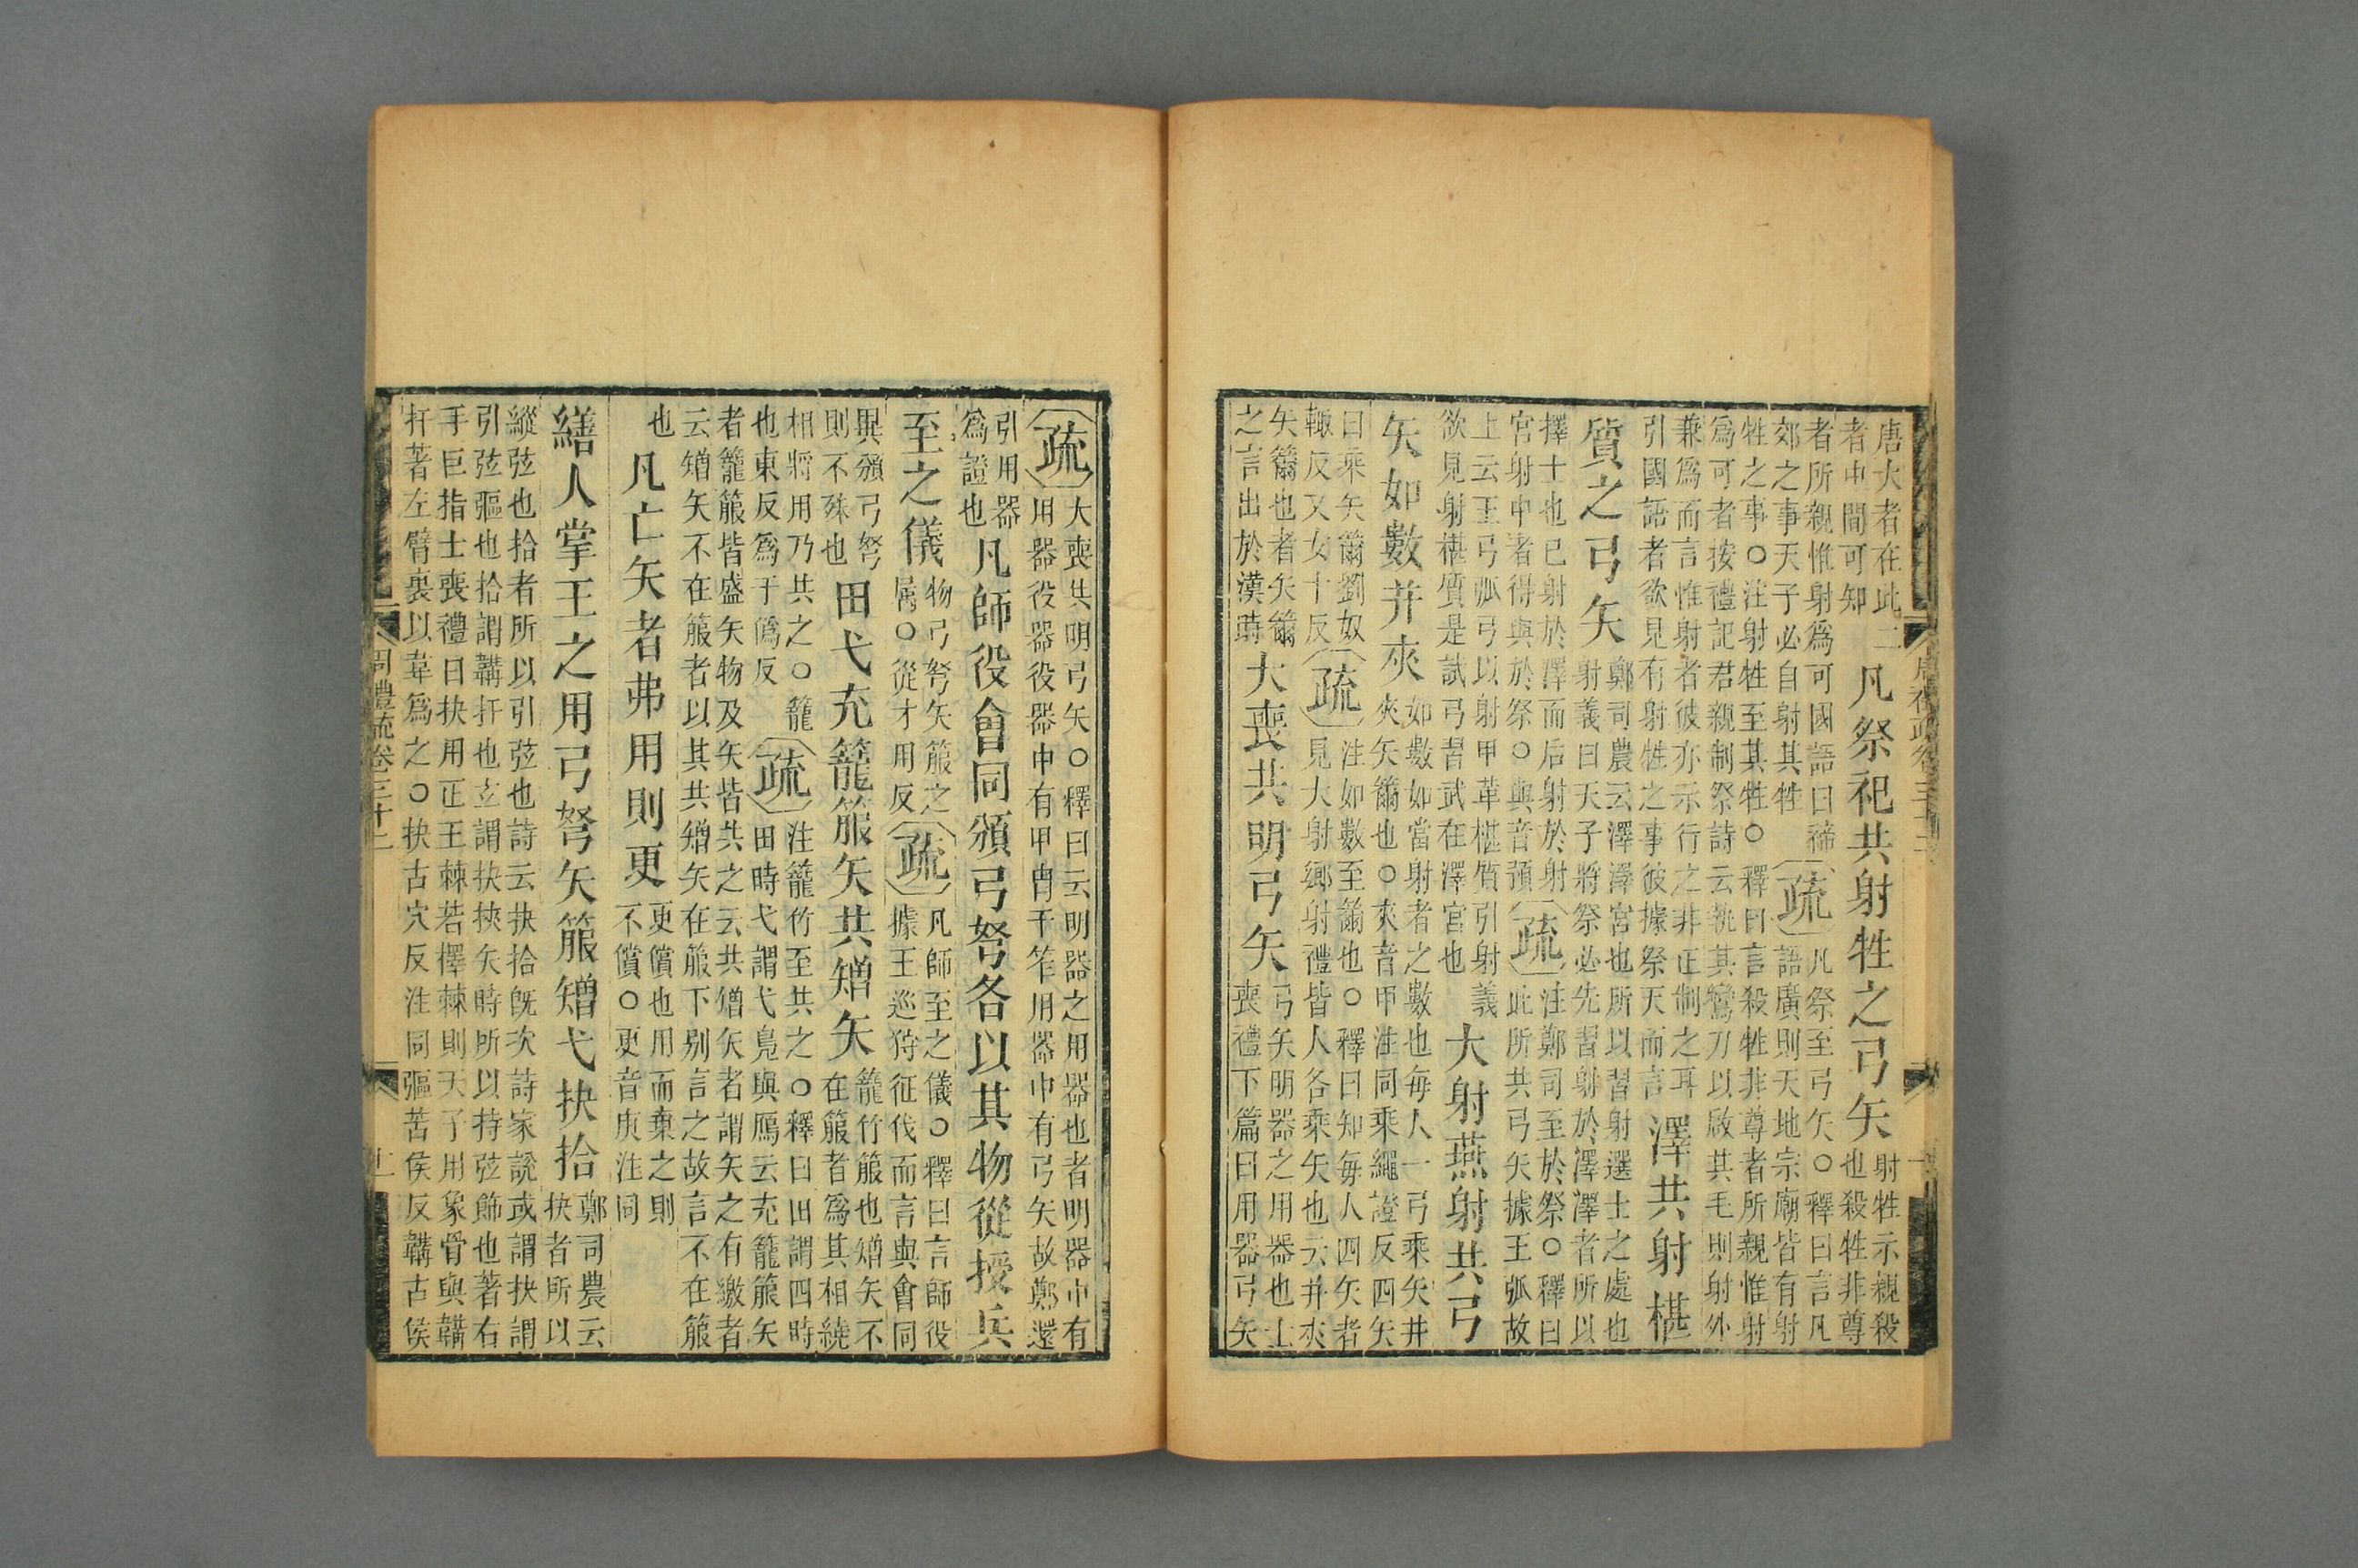 唐大者在此二
者中間可知
凡祭祀共射牲之弓矢
射牲示親殺
也殺牲非尊
者所親惟射爲可國語曰禘
郊之事天子必自射其牲
疏
凡祭至弓矢○釋曰言凡
語廣則天地宗廟皆有射
牲之事○注射牲至其牲○釋曰言殺牲非尊者所親惟射
爲可者按禮記君親制祭詩云執其鸞刀以啟其毛則射外
兼爲而言惟射者彼亦示行之非正制之耳
引國語者欲見有射牲之事彼據祭天而言
澤共射椹
質之弓矢
鄭司農云澤澤宮也所以習射選士之處也
射義曰天子將祭必先習射於澤澤者所以
擇士也已射於澤而后射於射
宮射中者得與於祭○與音預
疏
注鄭司至於祭○釋曰
此所共弓矢據王弧故
上云王弓弧弓以射甲革椹質引射義
欲見射椹質是試弓習武在澤宮也
大射燕射共弓
矢如數并夾
如數如當射者之數也每人一弓乘矢并
夾矢籋也○夾音甲注同乘繩證反四矢
曰乘矢籋劉奴
輒反又女十反
疏
注如數至籋也○釋曰知每人四矢者
見大射鄉射禮皆人各乘矢也云并夾
矢籋也者矢籋
之言出於漢時
大喪共明弓矢
弓矢明器之用器也士
喪禮下篇曰用器弓矢
疏
大喪共明弓矢○釋曰云明器之用器也者明器中有
用器役器役器中有甲冑干笮用器中有弓矢故鄭還
引用器
爲證也
凡師役會同頒弓弩各以其物從授兵
至之儀
物弓弩矢箙之
屬○從才用反
疏
凡師至之儀○釋曰言師役
據王巡狩征伐而言與會同
異頒弓弩
則不殊也
田弋充籠箙矢共矰矢
籠竹箙也矰矢不
在箙者爲其相繞
相將用乃共之○籠
也東反爲于僞反
疏
注籠竹至共之○釋曰田謂四時
田時弋謂弋鳧與鴈云充籠箙矢
者籠箙皆盛矢物及矢皆共之云共矰矢者謂矢之有繳者
云矰矢不在箙者以其共矰矢在箙下別言之故言不在箙
也
凡亡矢者弗用則更
更償也用而棄之則
不償○更音庚注同
繕人掌王之用弓弩矢箙矰弋抉拾
鄭司農云
抉者所以
縱弦也拾者所以引弦也詩云抉拾旣次詩家說或謂抉謂
引弦彄也拾謂韝扞也玄謂抉挾矢時所以持弦飾也著右
手巨指士喪禮曰抉用正王棘若擇棘則天子用象骨與韝
扞著左臂裏以韋爲之○抉古穴反注同彄苦侯反韝古侯
周禮疏卷三十二
十一